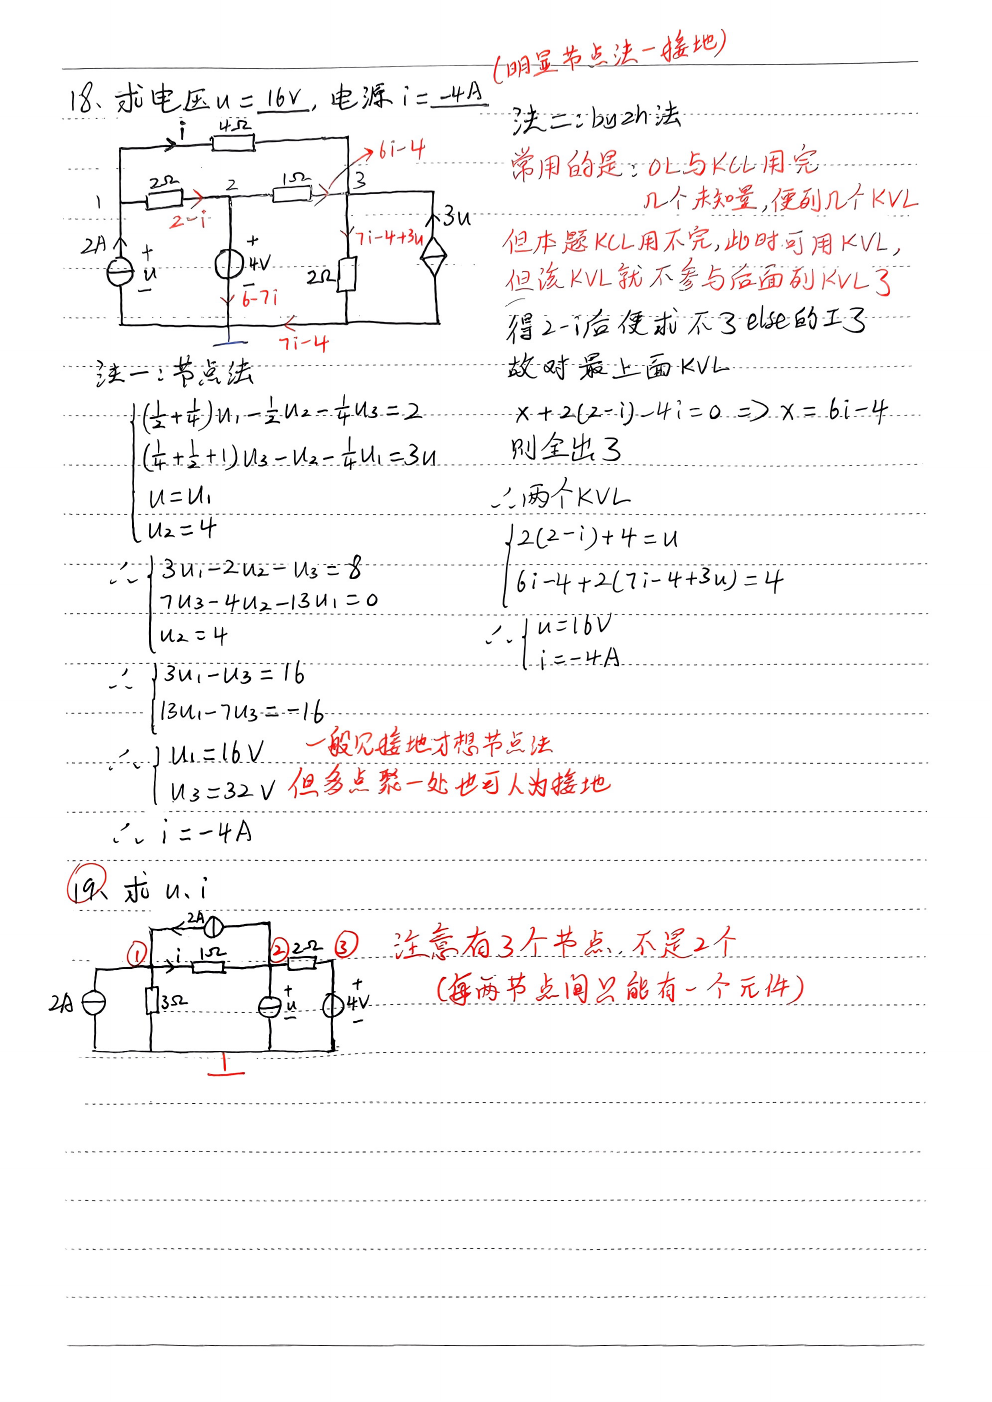 (明显节点法一接地)
18、求电压u=16V,电源i=-4A
i
4Ω
6i-4
2Ω
2
1Ω
3
1
2-i
3u
2A
+
u
-
+
4V
-
7i-4+3u
2Ω
6-7i
7i-4
法一:节点法
(½+¼)u₁-½u₂-¼u₃=2
(¼+½+1)u₃-u₂-¼u₁=3u
u=u₁
u₂=4
∴ 3u₁-2u₂-u₃=8
7u₃-4u₂-13u₁=0
u₂=4
∴ 3u₁-u₃=16
13u₁-7u₃=-16
∴ u₁=16V
u₃=32V
一般见接地才想节点法
但多点聚一处也可人为接地
∴ i=-4A
法二:byzh法
常用的是:OL与KCL用完
几个未知量,便列几个KVL
但本题KCL用不完,此时可用KVL,
但该KVL就不参与后面列KVL了
得2-i后便求不了else的I了
故对最上面KVL
x+2(2-i)-4i=0 => x=6i-4
则全出了
∴两个KVL
2(2-i)+4=u
6i-4+2(7i-4+3u)=4
∴ u=16V
i=-4A
19、求u、i
2A
①
i
1Ω
②
2Ω
③
2A
3Ω
+
u
-
+
4V
-
注意有3个节点,不是2个
(每两节点间只能有一个元件)